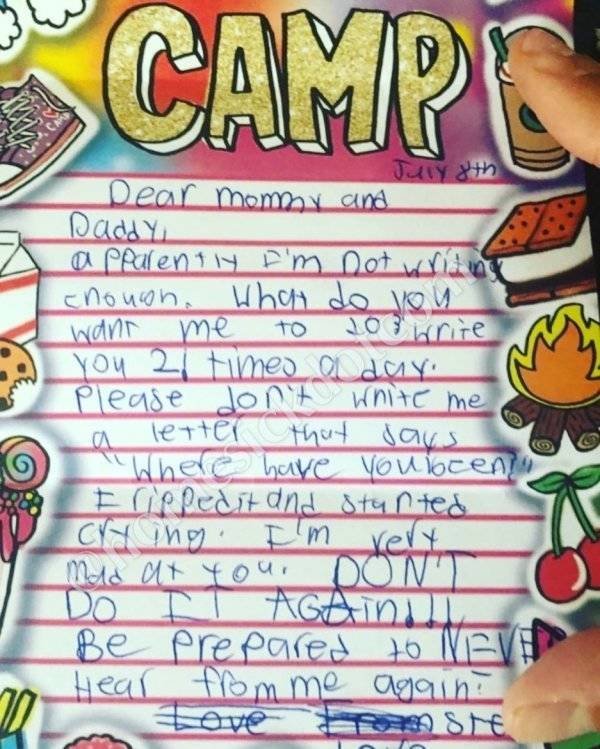 CAMP
July 8th
Dear mommy and
Daddy,
apparently I'm not writing
enough. What do you
want me to do? write
you 21 times a day.
Please don't write me
a letter that says
"Where have you been?"
I ripped it and started
crying. I'm very
mad at you. DON'T
Do IT AGAin!!!
Be prepared to NEVE
Hear from me again!
Love From